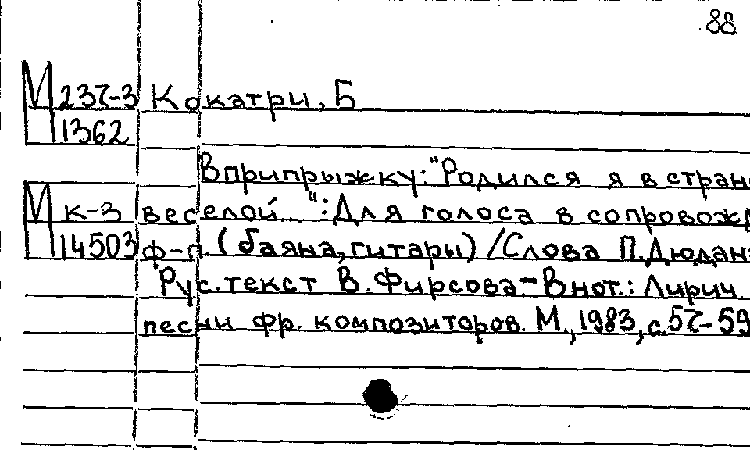 88
М 237-3 Кокатри, Б
1362
Вприпрыжку: "Родился я в стран
М к-3 веселой... ": Для голоса в сопровожд
14503 ф-п. (баяна, гитары) / Слова П. Дюдан
Рус. текст В. Фирсова - В нот.: Лирич.
песни фр. композиторов. М., 1983, с. 57-59